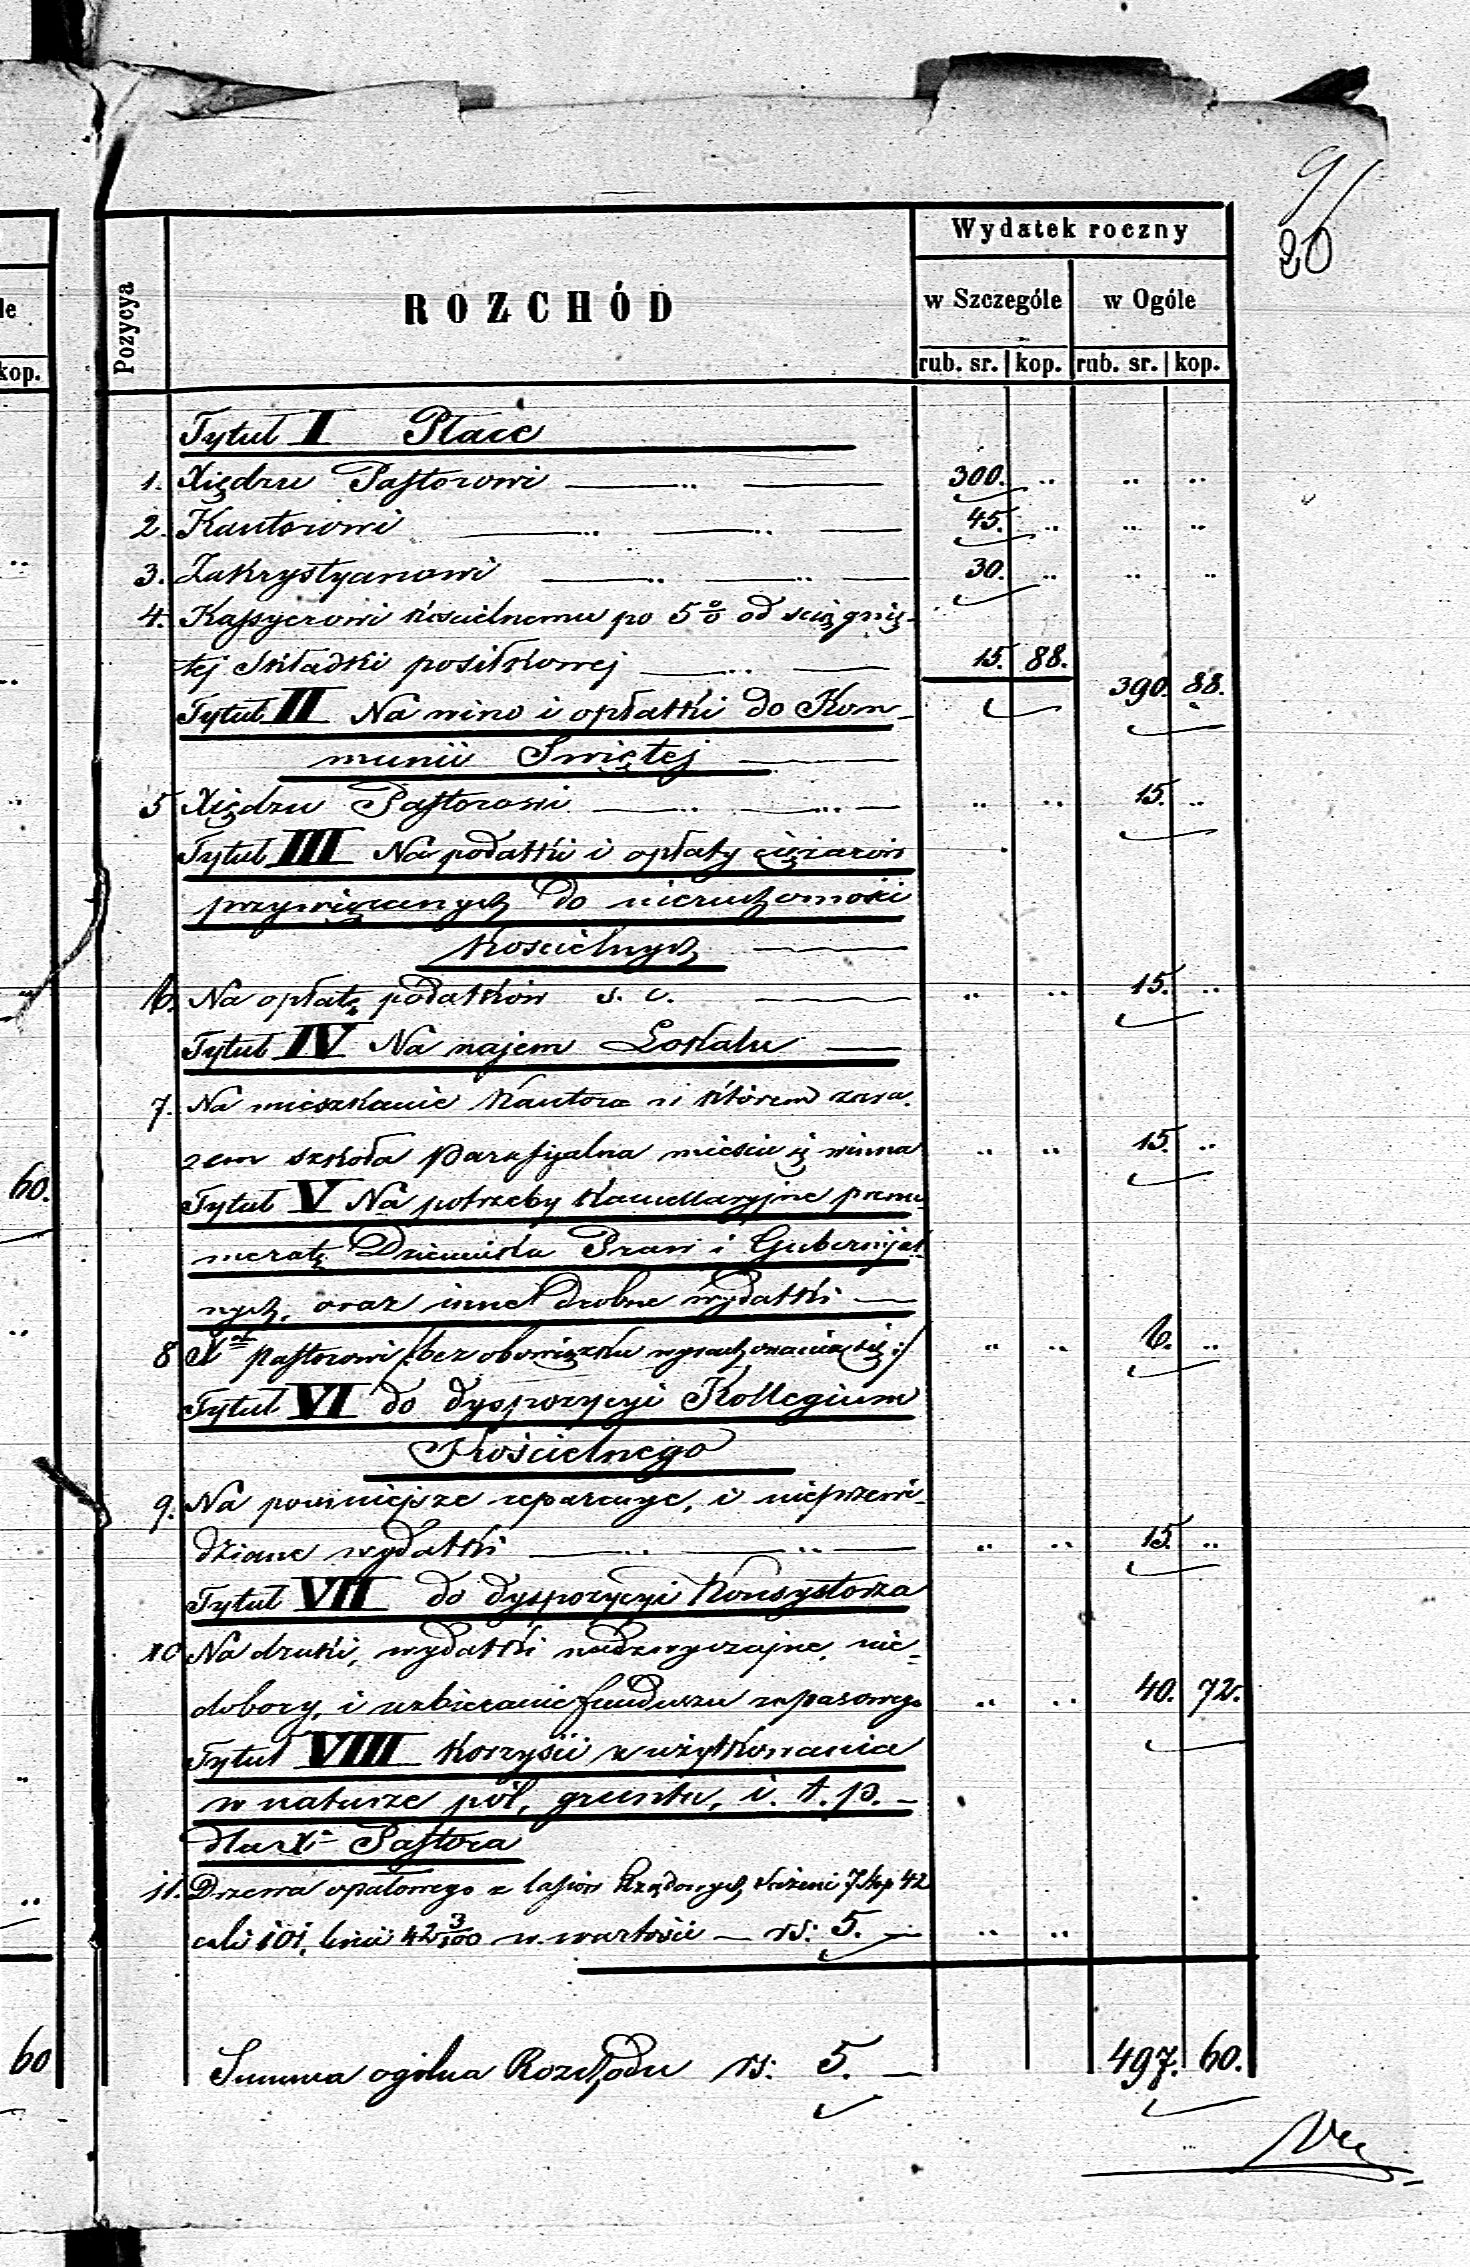 91
20
le
kop.
60.
60
Pozycya
ROZCHÓD
Wydatek roczny
w Szczególe
w Ogóle
rub. sr. kop. rub. sr. kop.
Tytuł I Płace
1. Xiędzu Pastorowi 300. .. .. ..
2. Kantorowi 45. .. .. ..
3. Zakrystyanowi 30. .. .. ..
4. Kassyerowi kościelnemu po 5 % od ściągnię-
tej Składki posiłkowej 15. 88. 390. 88.
Tytuł II Na wino i opłatki do Kom-
munii Swiętej
5 Xiędzu Pastorowi .. .. 15. ..
Tytuł III Na podatki i opłaty ciężarów
przywiązanych do nieruchomości
Kościelnych
6. Na opłatę podatków s. c. .. .. 15. ..
Tytuł IV Na najem Lokalu
7. Na mieszkanie Kantora w którem zara-
zem szkoła parafijalna mieścić się winna .. .. 15. ..
Tytuł V Na potrzeby Kancellaryjne prenu-
meratę Dziennika Praw i Gubernijal-
nych, oraz inne drobne wydatki
8 Xdzu pastorowi /: bez obowiązku wyrachowania się :/ .. .. 6. ..
Tytuł VI do dyspozycyi Kollegium
Kościelnego
9. Na pomniejsze reparacye, i nieprzewi-
dziane wydatki .. .. 15. ..
Tytuł VII do dyspozycyi Konsystorza
10 Na druki, wydatki nadzwyczajne, nie-
dobory, i uzbieranie funduszu zapasowego .. .. 40. 72.
Tytuł VIII Korzyści z użytkowania
w naturze pól, gruntu, i. t. p. –
dla X. Pastora
11. Drzewa opałowego z lasów Rządowych sążeni 7 stóp 42
cali 101, linii 42 3/100 w wartości — rs: 5. — .. ..
Summa ogólna Rozchodu rs: 5. — 497. 60.